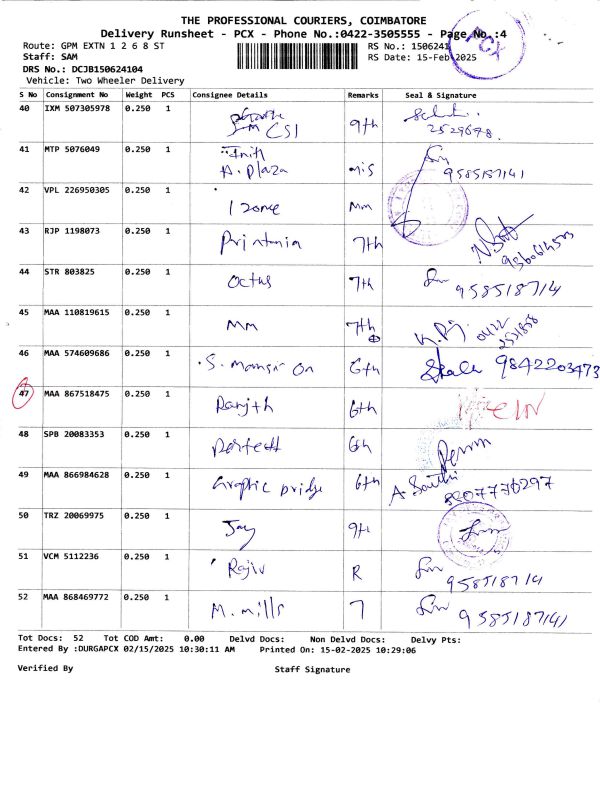 THE PROFESSIONAL COURIERS, COIMBATORE
Delivery Runsheet - PCX - Phone No.:0422-3505555 - Page No.:4
Route: GPM EXTN 1 2 6 8 ST RS No.: 1506241
Staff: SAM RS Date: 15-Feb 2025
DRS No.: DCJB150624104
Vehicle: Two Wheeler Delivery
PCX
S No Consignment No Weight PCS Consignee Details Remarks Seal & Signature
40 IXM 507305978 0.250 1 CSI 9th 2529678
41 MTP 5076049 0.250 1 A. Plaza 9585187141
42 VPL 226950305 0.250 1 I zone MM
43 RJP 1198073 0.250 1 Printania 7th
44 STR 803825 0.250 1 Octus 7th 958518714
45 MAA 110819615 0.250 1 MM 7th 0422
46 MAA 574609686 0.250 1 S. Mansion 6th 9842203473
47 MAA 867518475 0.250 1 Ranjith 6th
48 SPB 20083353 0.250 1 Perfect 6th
49 MAA 866984628 0.250 1 Graphic bridge 6th
50 TRZ 20069975 0.250 1 Jay 9th
51 VCM 5112236 0.250 1 Rajiv R 958518714
52 MAA 868469772 0.250 1 M. mills 7 9585187141
Tot Docs: 52 Tot COD Amt: 0.00 Delvd Docs: Non Delvd Docs: Delvy Pts:
Entered By :DURGAPCX 02/15/2025 10:30:11 AM Printed On: 15-02-2025 10:29:06
Verified By Staff Signature